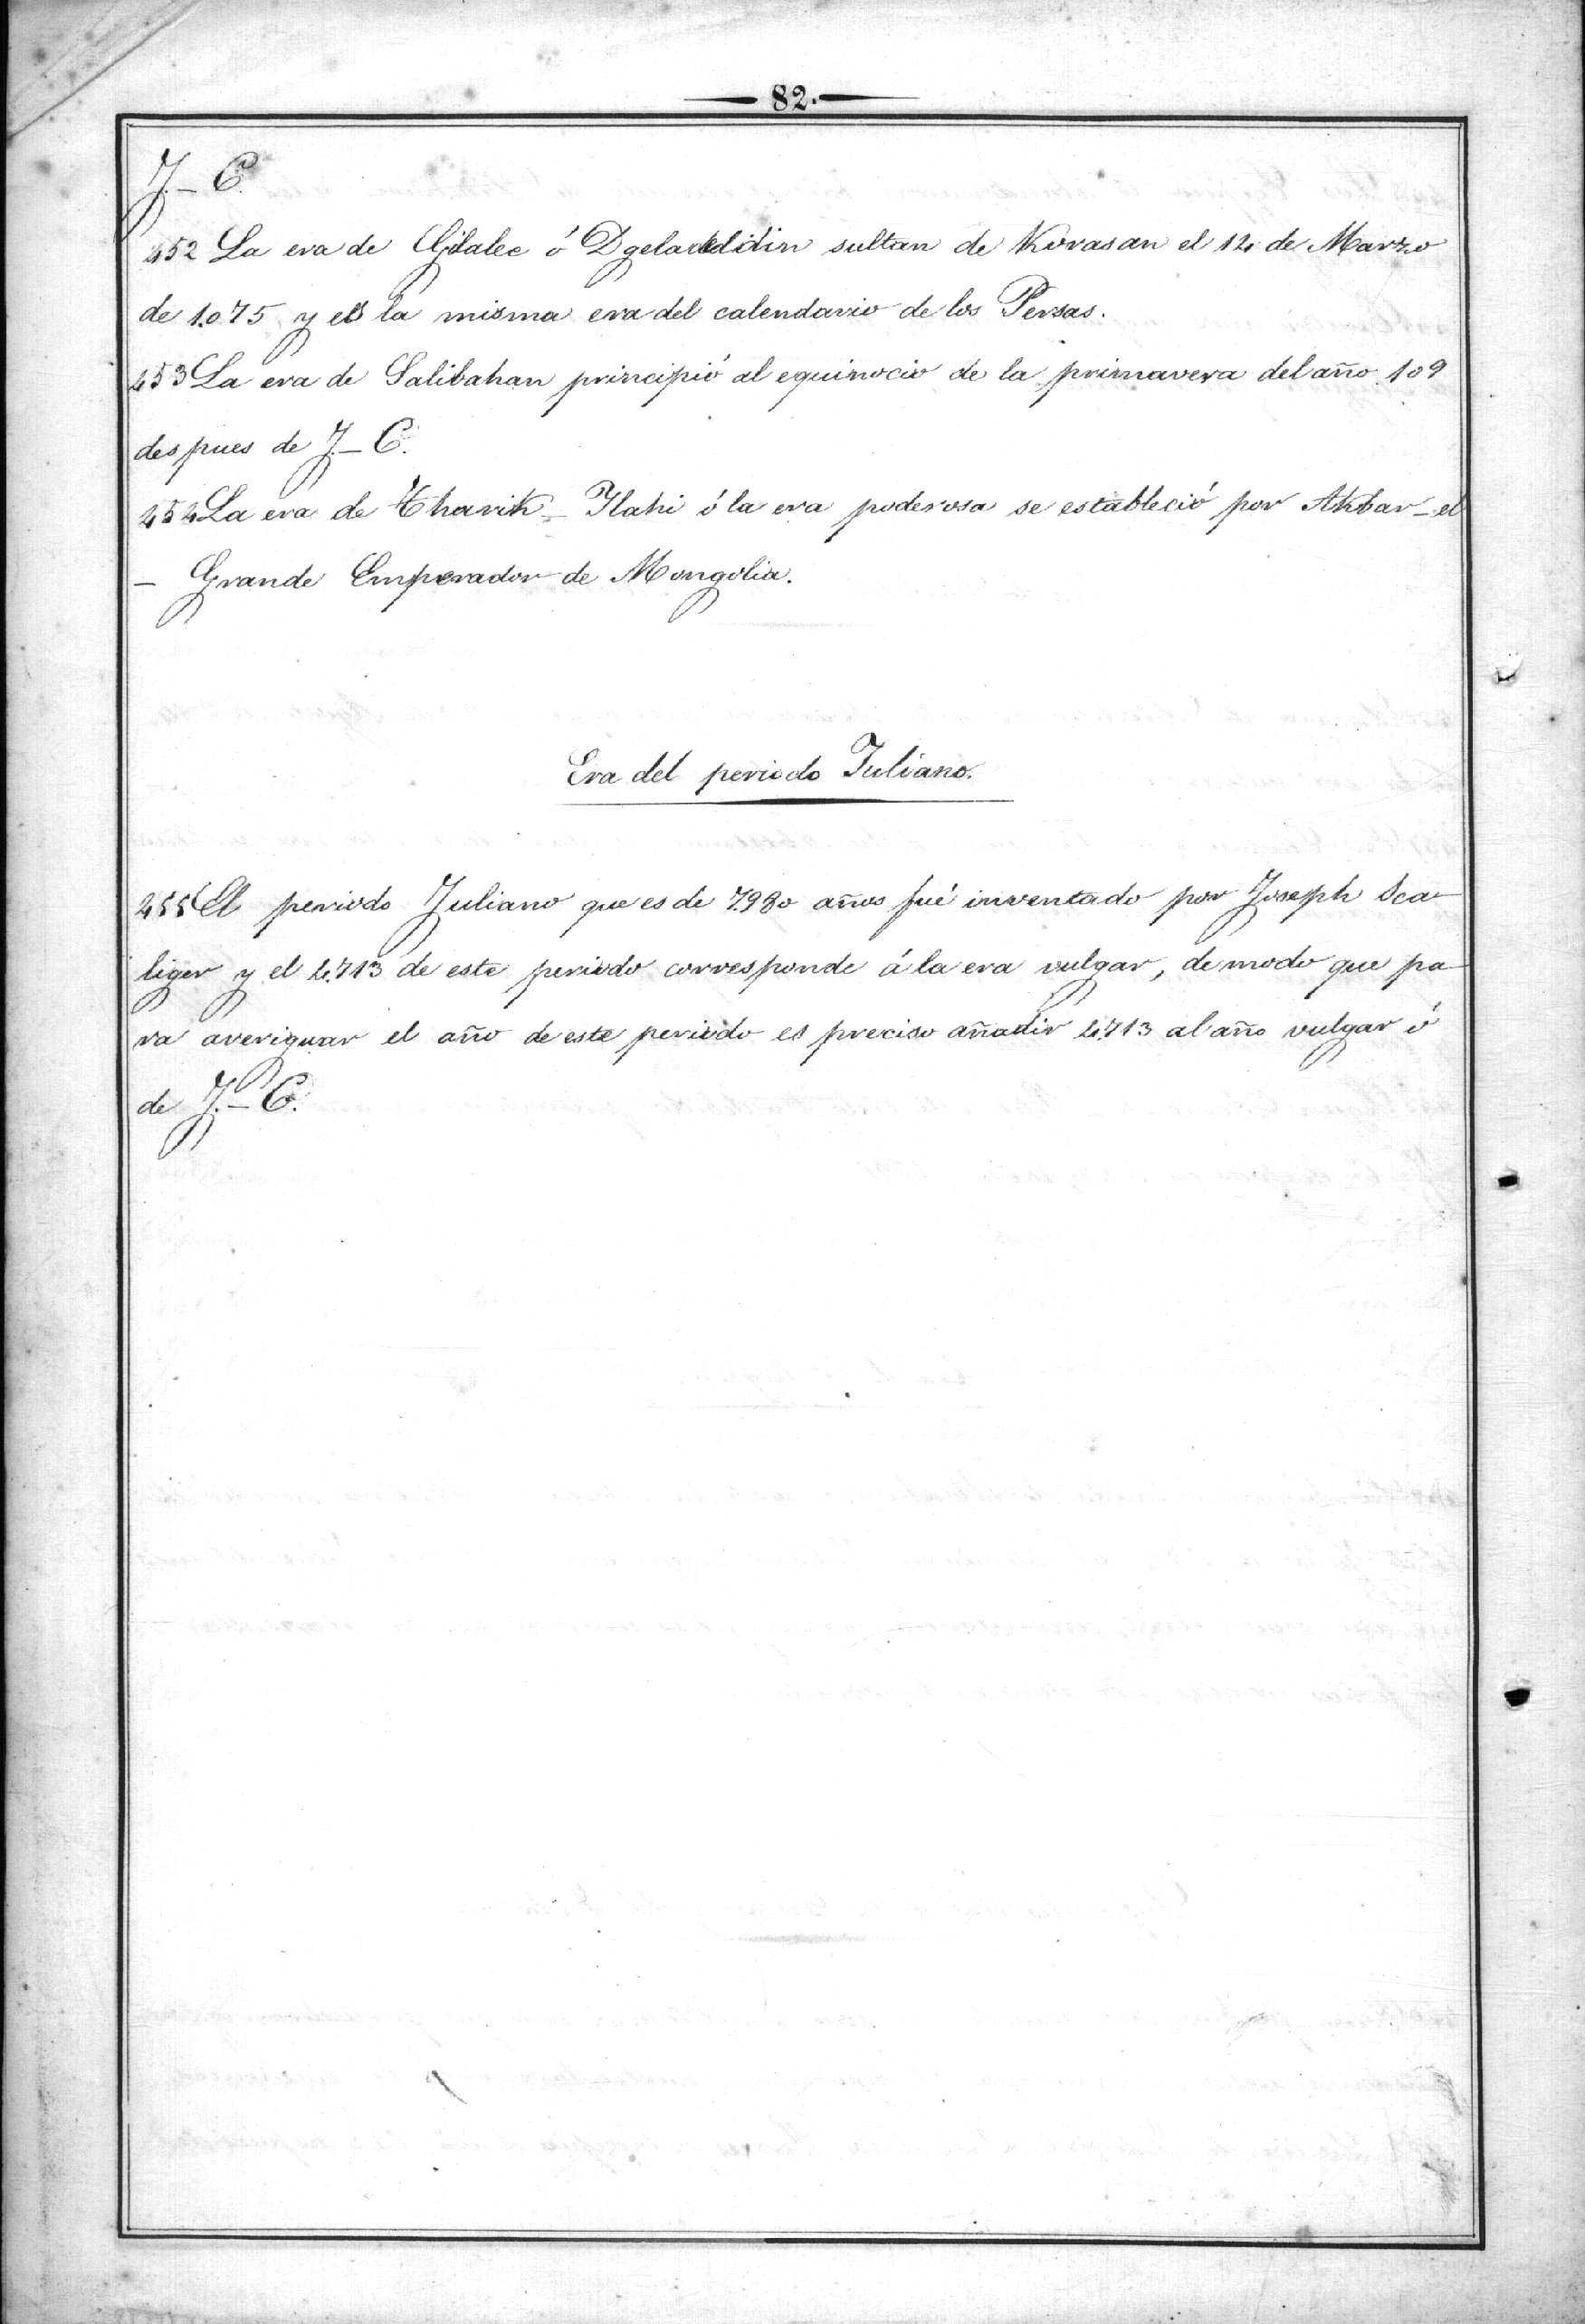 82.
J.-C.
452 La era de Gelalec ó Dgeladeddin sultan de Korasan el 14 de Marzo
de 1.075 y es la misma era del calendario de los Persas.
453 La era de Salibahan principió al equinocio de la primavera del año 109
despues de J.-C.
454 La era de Tharik-Ilahi ó la era poderosa se estableció por Akbar-el
-Grande Emperador de Mongolia.
Era del periodo Juliano.
455 El periodo Juliano que es de 7.980 años fué inventado por Joseph Sca-
liger y el 4.713 de este periodo corresponde á la era vulgar, de modo que pa-
ra averiguar el año de este periodo es preciso añadir 4.713 al año vulgar ó
de J.-C.